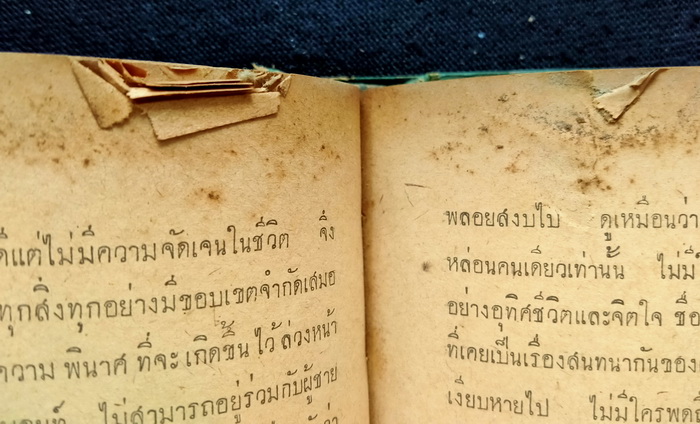 ดีแต่ไม่มีความจัดเจนในชีวิต จึ่ง
ทุกสิ่งทุกอย่างมีขอบเขตจำกัดเสมอ
ความ พินาศ ที่จะ เกิดขึ้น ไว้ ล่วงหน้า
ไม่สามารถอยู่ร่วมกับผู้ชาย
พลอยสงบไป ดูเหมือนว่า
หล่อนคนเดียวเท่านั้น ไม่มี
อย่างอุทิศชีวิตและจิตใจ ชื่อ
ที่เคยเป็นเรื่องสนทนากันของ
เงียบหายไป ไม่มีใครพูดถึ